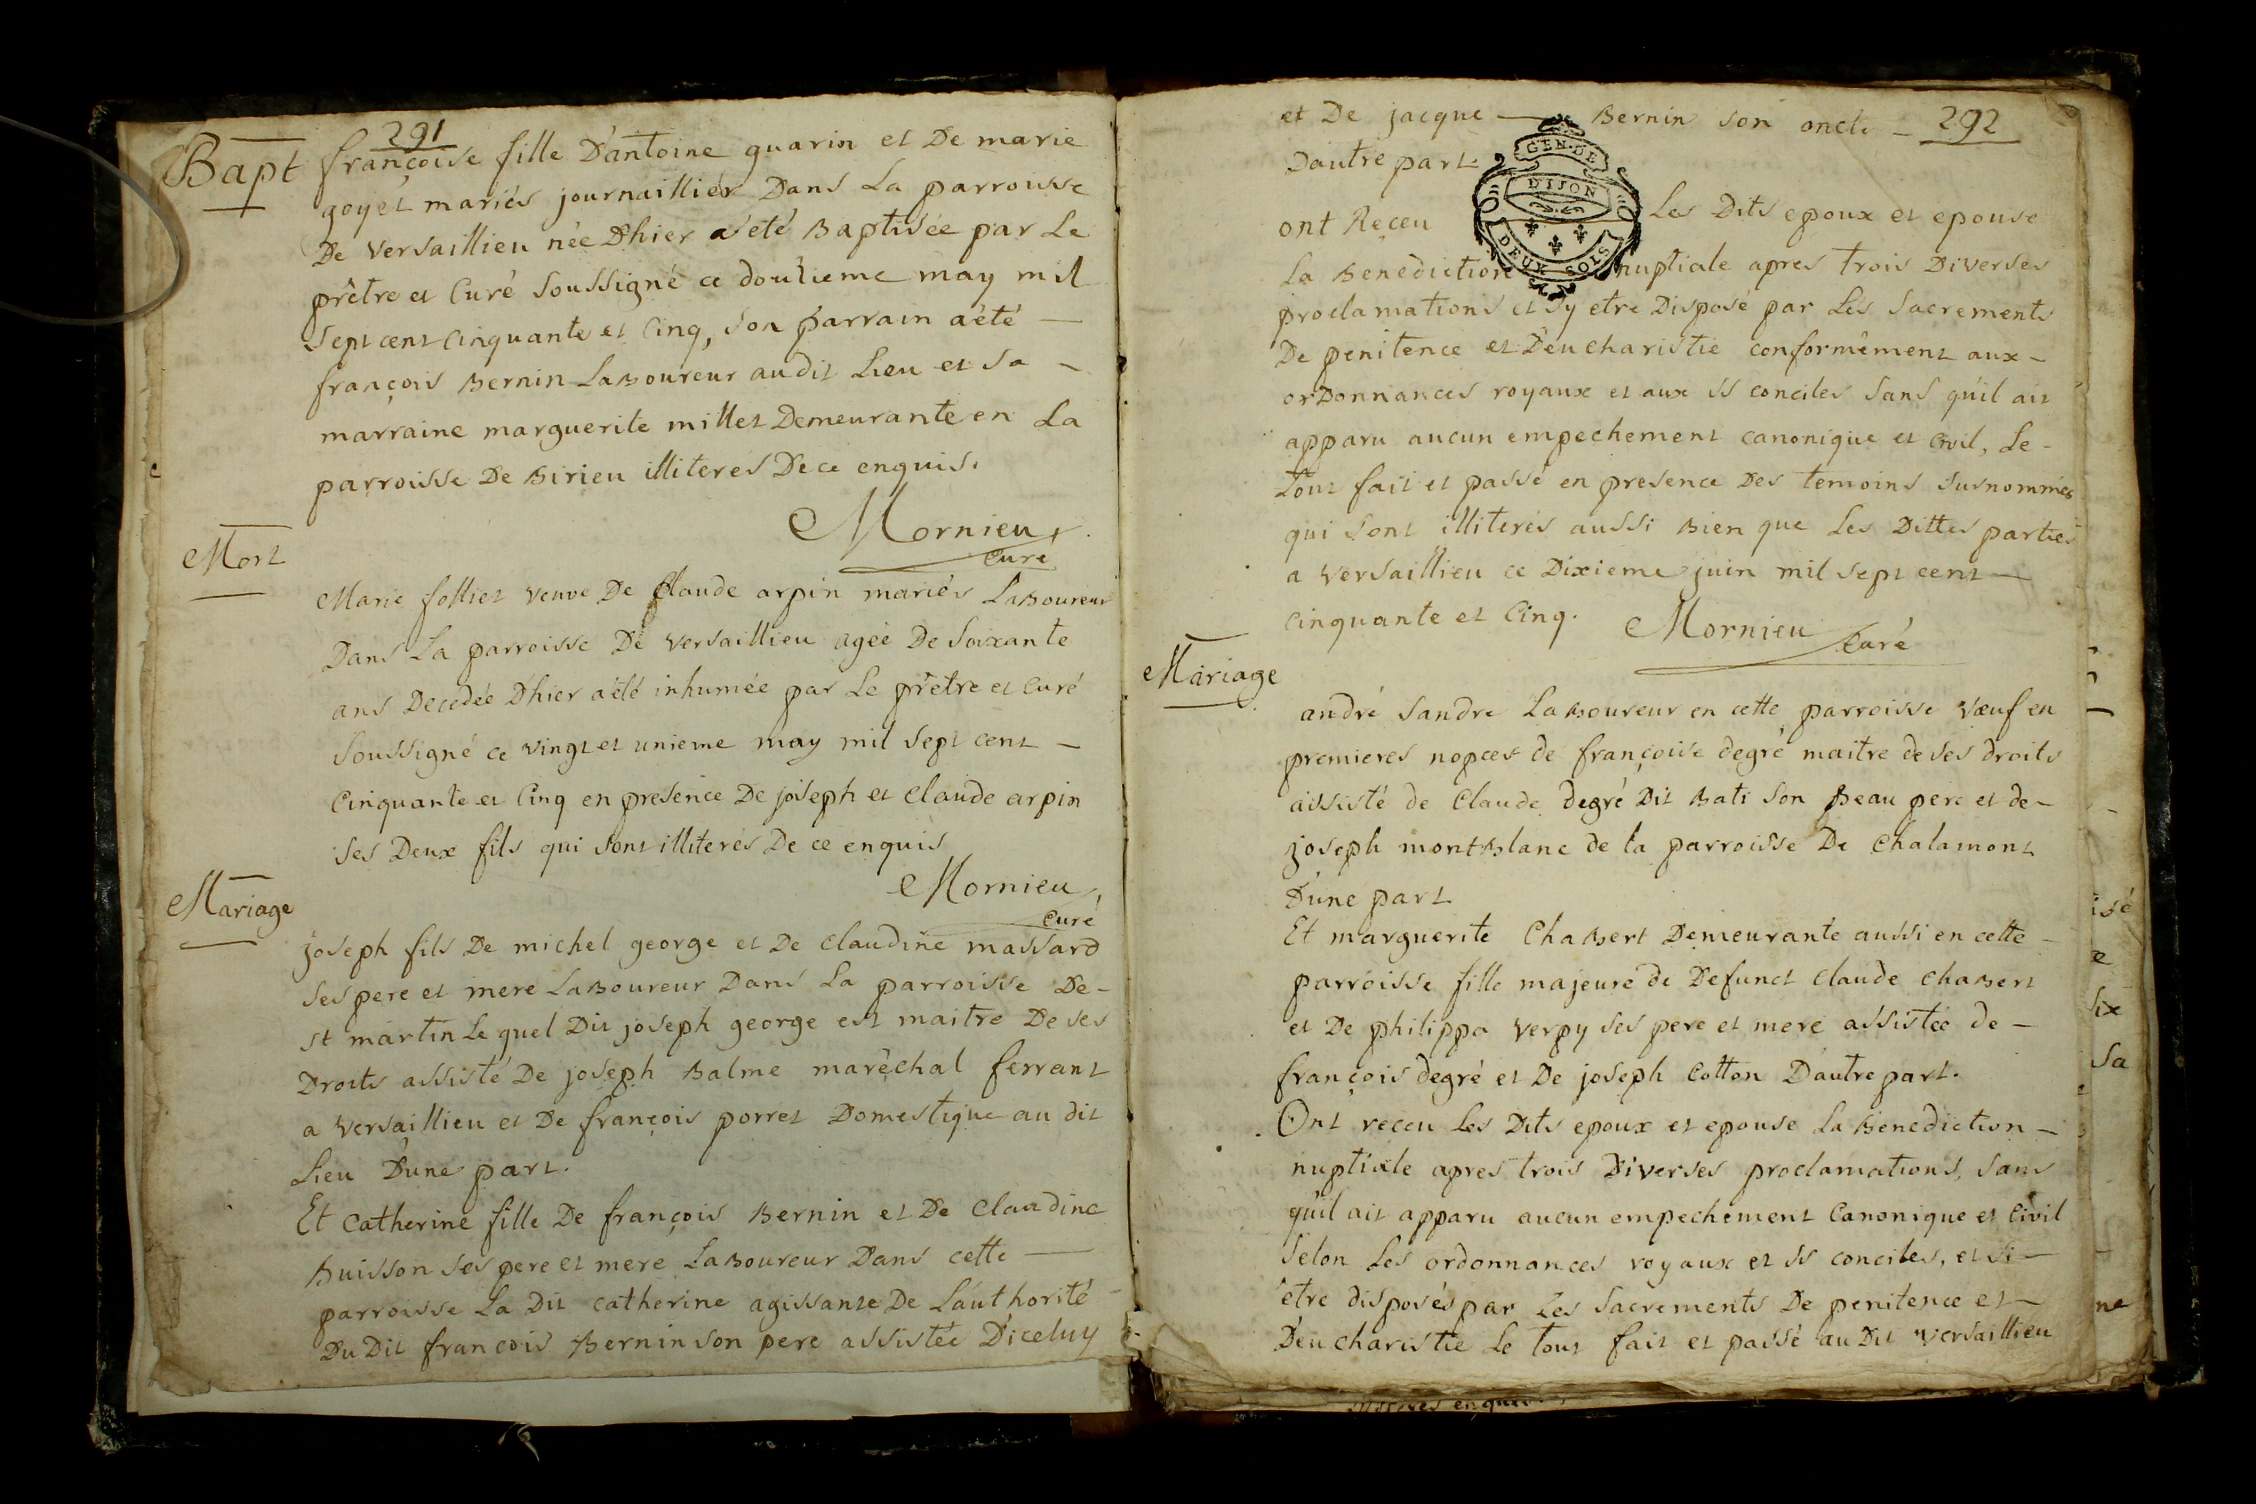 291
Bapt
françoise fille D'antoine guarin et De marie
goyet mariés journaillier Dans La parroisse
De Versaillieu née Dhier a été Baptisée par Le
prêtre et Curé Soussigné ce douzieme may mil
Sept cent Cinquante et Cinq, Son parrain a été —
françois Bernin LaBoureur audit Lieu et Sa -
marraine marguerite millet Demeurante en La
parroisse De Birieu illiteres De ce enquis.
Mornieu
Curé
Mort
Marie folliet veuve De Claude arpin mariés LaBoureur
Dans La parroisse De Versaillieu agée De Soixante
ans Decedée Dhier a été inhumée par Le prêtre et Curé
Soussigné ce vingt et unieme may mil Sept cent —
Cinquante et Cinq en presence De joseph et Claude arpin
Ses Deux fils qui Sont illiterés De ce enquis
Mornieu
Curé
Mariage
joseph fils De michel george et De claudine massard
Ses pere et mere LaBoureur Dans La parroisse De -
St martin Le quel Dit joseph george est maitre De ses
Droits assisté De joseph Balme marêchal ferrant
a Versaillieu et De françois porret Domestique au dit
Lieu D'une part.
Et Catherine fille De françois Bernin et De Claudine
Buisson Ses pere et mere LaBoureur Dans cette —
parroisse La Dit catherine agissante De L'authorité
Du Dit francois Bernin Son pere assistée D'iceluy
292
et De jacque — Bernin Son oncle -
D'autre part.
GEN. DE
DIJON
DEUX SOLS
ont Reçeu Les Dits epoux et epouse
La Benediction nuptiale apres trois Diverses
proclamations et Sy etre Disposé par Les Sacrements
De penitence et D'eucharistie conformêment aux -
orDonnances royaux et aux SS conciles Sans qu'il ait
apparu aucun empechement canonique et Civil, Le -
tout fait et passé en presence Des temoins Susnommés
qui Sont illiterés aussi Bien que Les Dittes parties
a Versaillieu ce Dixieme juin mil Sept cent —
Cinquante et Cinq. Mornieu
Curé
Mariage
andré Sandre LaBoureur en cette parroisse Vœuf en
premieres nopces de françoise degré maitre de ses droits
assisté de Claude degré Dit Bati Son Beau pere et de -
joseph montBlanc de la parroisse De Chalamont
D'une part
Et marguerite ChaBert Demeurante aussi en cette -
parroisse fille majeure de Defunct Claude ChaBert
et De philippa Verpy Ses pere et mere assistée de -
françois degré et De joseph Cotton D'autre part.
Ont receu Les Dits epoux et epouse La Benediction -
nuptiale apres trois Diverses proclamations, Sans
qu'il ait apparu aucun empechement Canonique et Civil
Selon Les ordonnances royaux et SS conciles, et Si -
être disposés par Les Sacrements De penitence et -
D'eucharistie Le tout fait et passé au Dit Versaillieu
isé
e
Six
Sa
ne